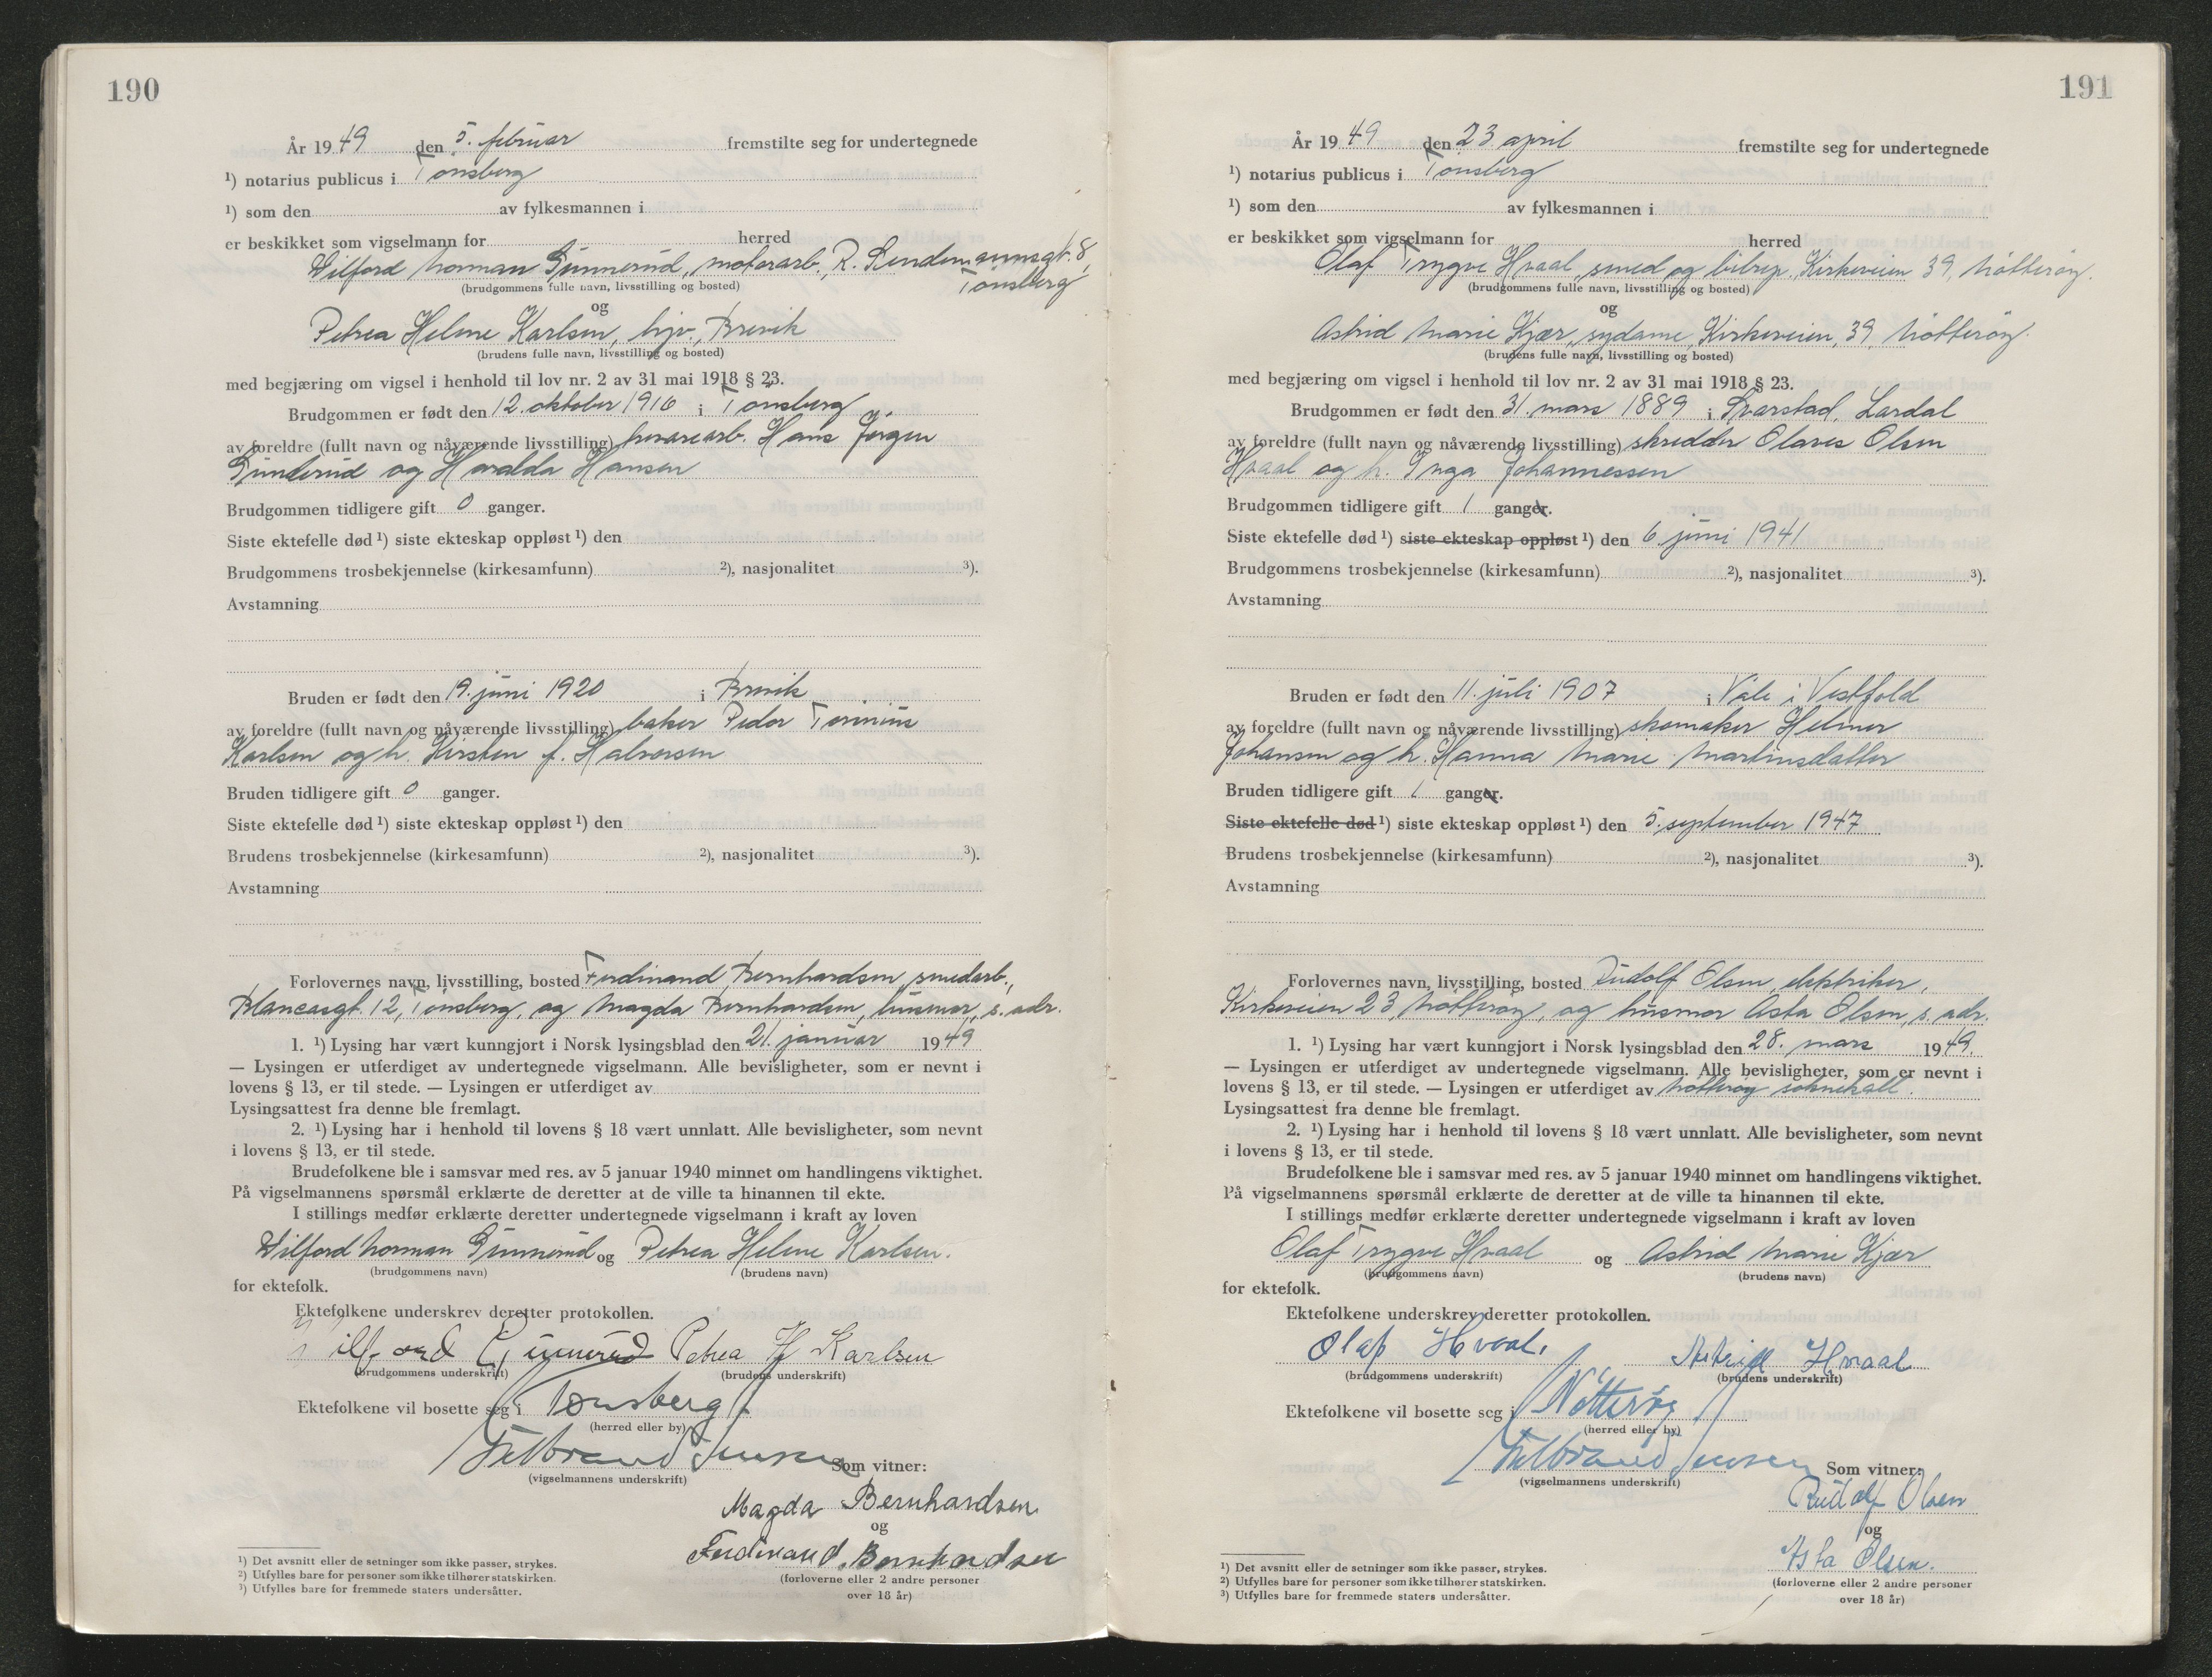 190
År 1949 den 5. februar fremstilte seg for undertegnede
¹) notarius publicus i Tønsberg
¹) som den av fylkesmannen i
er beskikket som vigselmann for herred
Wilford Norman Gunnerud, motorarb., R. gt. 8,
Tønsberg
(brudgommens fulle navn, livsstilling og bosted)
og
Petrea Helene Karlsen, hjv., Brevik
(brudens fulle navn, livsstilling og bosted)
med begjæring om vigsel i henhold til lov nr. 2 av 31 mai 1918 § 23.
Brudgommen er født den 12. oktober 1916 i Tønsberg
av foreldre (fullt navn og nåværende livsstilling) Hans Jørgen
og Haralda Hansen
Brudgommen tidligere gift 0 ganger.
Siste ektefelle død ¹) siste ekteskap oppløst ¹) den
Brudgommens trosbekjennelse (kirkesamfunn) ²), nasjonalitet ³).
Avstamning
Bruden er født den 19. juni 1920 i Brevik
av foreldre (fullt navn og nåværende livsstilling) baker Pedor
Karlsen og h. Kirsten f. Halvorsen
Bruden tidligere gift 0 ganger.
Siste ektefelle død ¹) siste ekteskap oppløst ¹) den
Brudens trosbekjennelse (kirkesamfunn) ²), nasjonalitet ³).
Avstamning
Forlovernes navn, livsstilling, bosted Ferdinand Bernhardsen, smedarb.,
Blancasgt. 12, Tønsberg, og Magda Bernhardsen, husmor, s. adr.
1. ¹) Lysing har vært kunngjort i Norsk lysingsblad den 21. januar 1949
— Lysingen er utferdiget av undertegnede vigselmann. Alle bevisligheter, som er nevnt i
lovens § 13, er til stede. — Lysingen er utferdiget av
Lysingsattest fra denne ble fremlagt.
2. ¹) Lysing har i henhold til lovens § 18 vært unnlatt. Alle bevisligheter, som nevnt
i lovens § 13, er til stede.
Brudefolkene ble i samsvar med res. av 5 januar 1940 minnet om handlingens viktighet.
På vigselmannens spørsmål erklærte de deretter at de ville ta hinannen til ekte.
I stillings medfør erklærte deretter undertegnede vigselmann i kraft av loven
Wilford Norman Gunnerud og Petrea Helene Karlsen.
(brudgommens navn) (brudens navn)
for ektefolk.
Ektefolkene underskrev deretter protokollen.
Wilford Gunnerud Petrea H Karlsen
(brudgommens underskrift) (brudens underskrift)
Ektefolkene vil bosette seg i Tønsberg
(herred eller by)
Jensen
(vigselmannens underskrift)
Som vitner:
Magda Bernhardsen
og
Ferdinand Bernhardsen
(forloverne eller 2 andre personer
over 18 år)
¹) Det avsnitt eller de setninger som ikke passer, strykes.
²) Utfylles bare for personer som ikke tilhører statskirken.
³) Utfylles bare for fremmede staters undersåtter.
191
År 1949 den 23 april fremstilte seg for undertegnede
¹) notarius publicus i Tønsberg
¹) som den av fylkesmannen i
er beskikket som vigselmann for herred
Olaf Trygve Hvaal, smed og bilrep., Kirkeveien 39, Nøtterøy.
(brudgommens fulle navn, livsstilling og bosted)
og
Astrid Marie Kjær, sydame, Kirkeveien, 39, Nøtterøy.
(brudens fulle navn, livsstilling og bosted)
med begjæring om vigsel i henhold til lov nr. 2 av 31 mai 1918 § 23.
Brudgommen er født den 31. mars 1889 i Svarstad, Lardal
av foreldre (fullt navn og nåværende livsstilling) skredder Olaves Olsen
Hvaal og h. Inga Johannessen
Brudgommen tidligere gift 1 ganger.
Siste ektefelle død ¹) siste ekteskap oppløst ¹) den 6. juni 1941
Brudgommens trosbekjennelse (kirkesamfunn) ²), nasjonalitet ³).
Avstamning
Bruden er født den 11. juli 1907 i Våle i Vestfold
av foreldre (fullt navn og nåværende livsstilling) skomaker Helmer
Johansen og h. Hanna Marie Martinsdatter
Bruden tidligere gift 1 ganger.
Siste ektefelle død ¹) siste ekteskap oppløst ¹) den 5. september 1947
Brudens trosbekjennelse (kirkesamfunn) ²), nasjonalitet ³).
Avstamning
Forlovernes navn, livsstilling, bosted Rudolf Olsen, elektriker,
Kirkeveien 23, Nøtterøy, og husmor Asta Olsen, s. adr.
1. ¹) Lysing har vært kunngjort i Norsk lysingsblad den 28. mars 1949.
— Lysingen er utferdiget av undertegnede vigselmann. Alle bevisligheter, som er nevnt i
lovens § 13, er til stede. — Lysingen er utferdiget av Nøtterøy soknekall.
Lysingsattest fra denne ble fremlagt.
2. ¹) Lysing har i henhold til lovens § 18 vært unnlatt. Alle bevisligheter, som nevnt
i lovens § 13, er til stede.
Brudefolkene ble i samsvar med res. av 5 januar 1940 minnet om handlingens viktighet.
På vigselmannens spørsmål erklærte de deretter at de ville ta hinannen til ekte.
I stillings medfør erklærte deretter undertegnede vigselmann i kraft av loven
Olaf Trygve Hvaal og Astrid Marie Kjær
(brudgommens navn) (brudens navn)
for ektefolk.
Ektefolkene underskrev deretter protokollen.
Olaf Hvaal. Astrid Hvaal
(brudgommens underskrift) (brudens underskrift)
Ektefolkene vil bosette seg i Nøtterøy
(herred eller by)
Jensen
(vigselmannens underskrift)
Som vitner:
Rudolf Olsen
og
Asta Olsen.
(forloverne eller 2 andre personer
over 18 år)
¹) Det avsnitt eller de setninger som ikke passer, strykes.
²) Utfylles bare for personer som ikke tilhører statskirken.
³) Utfylles bare for fremmede staters undersåtter.